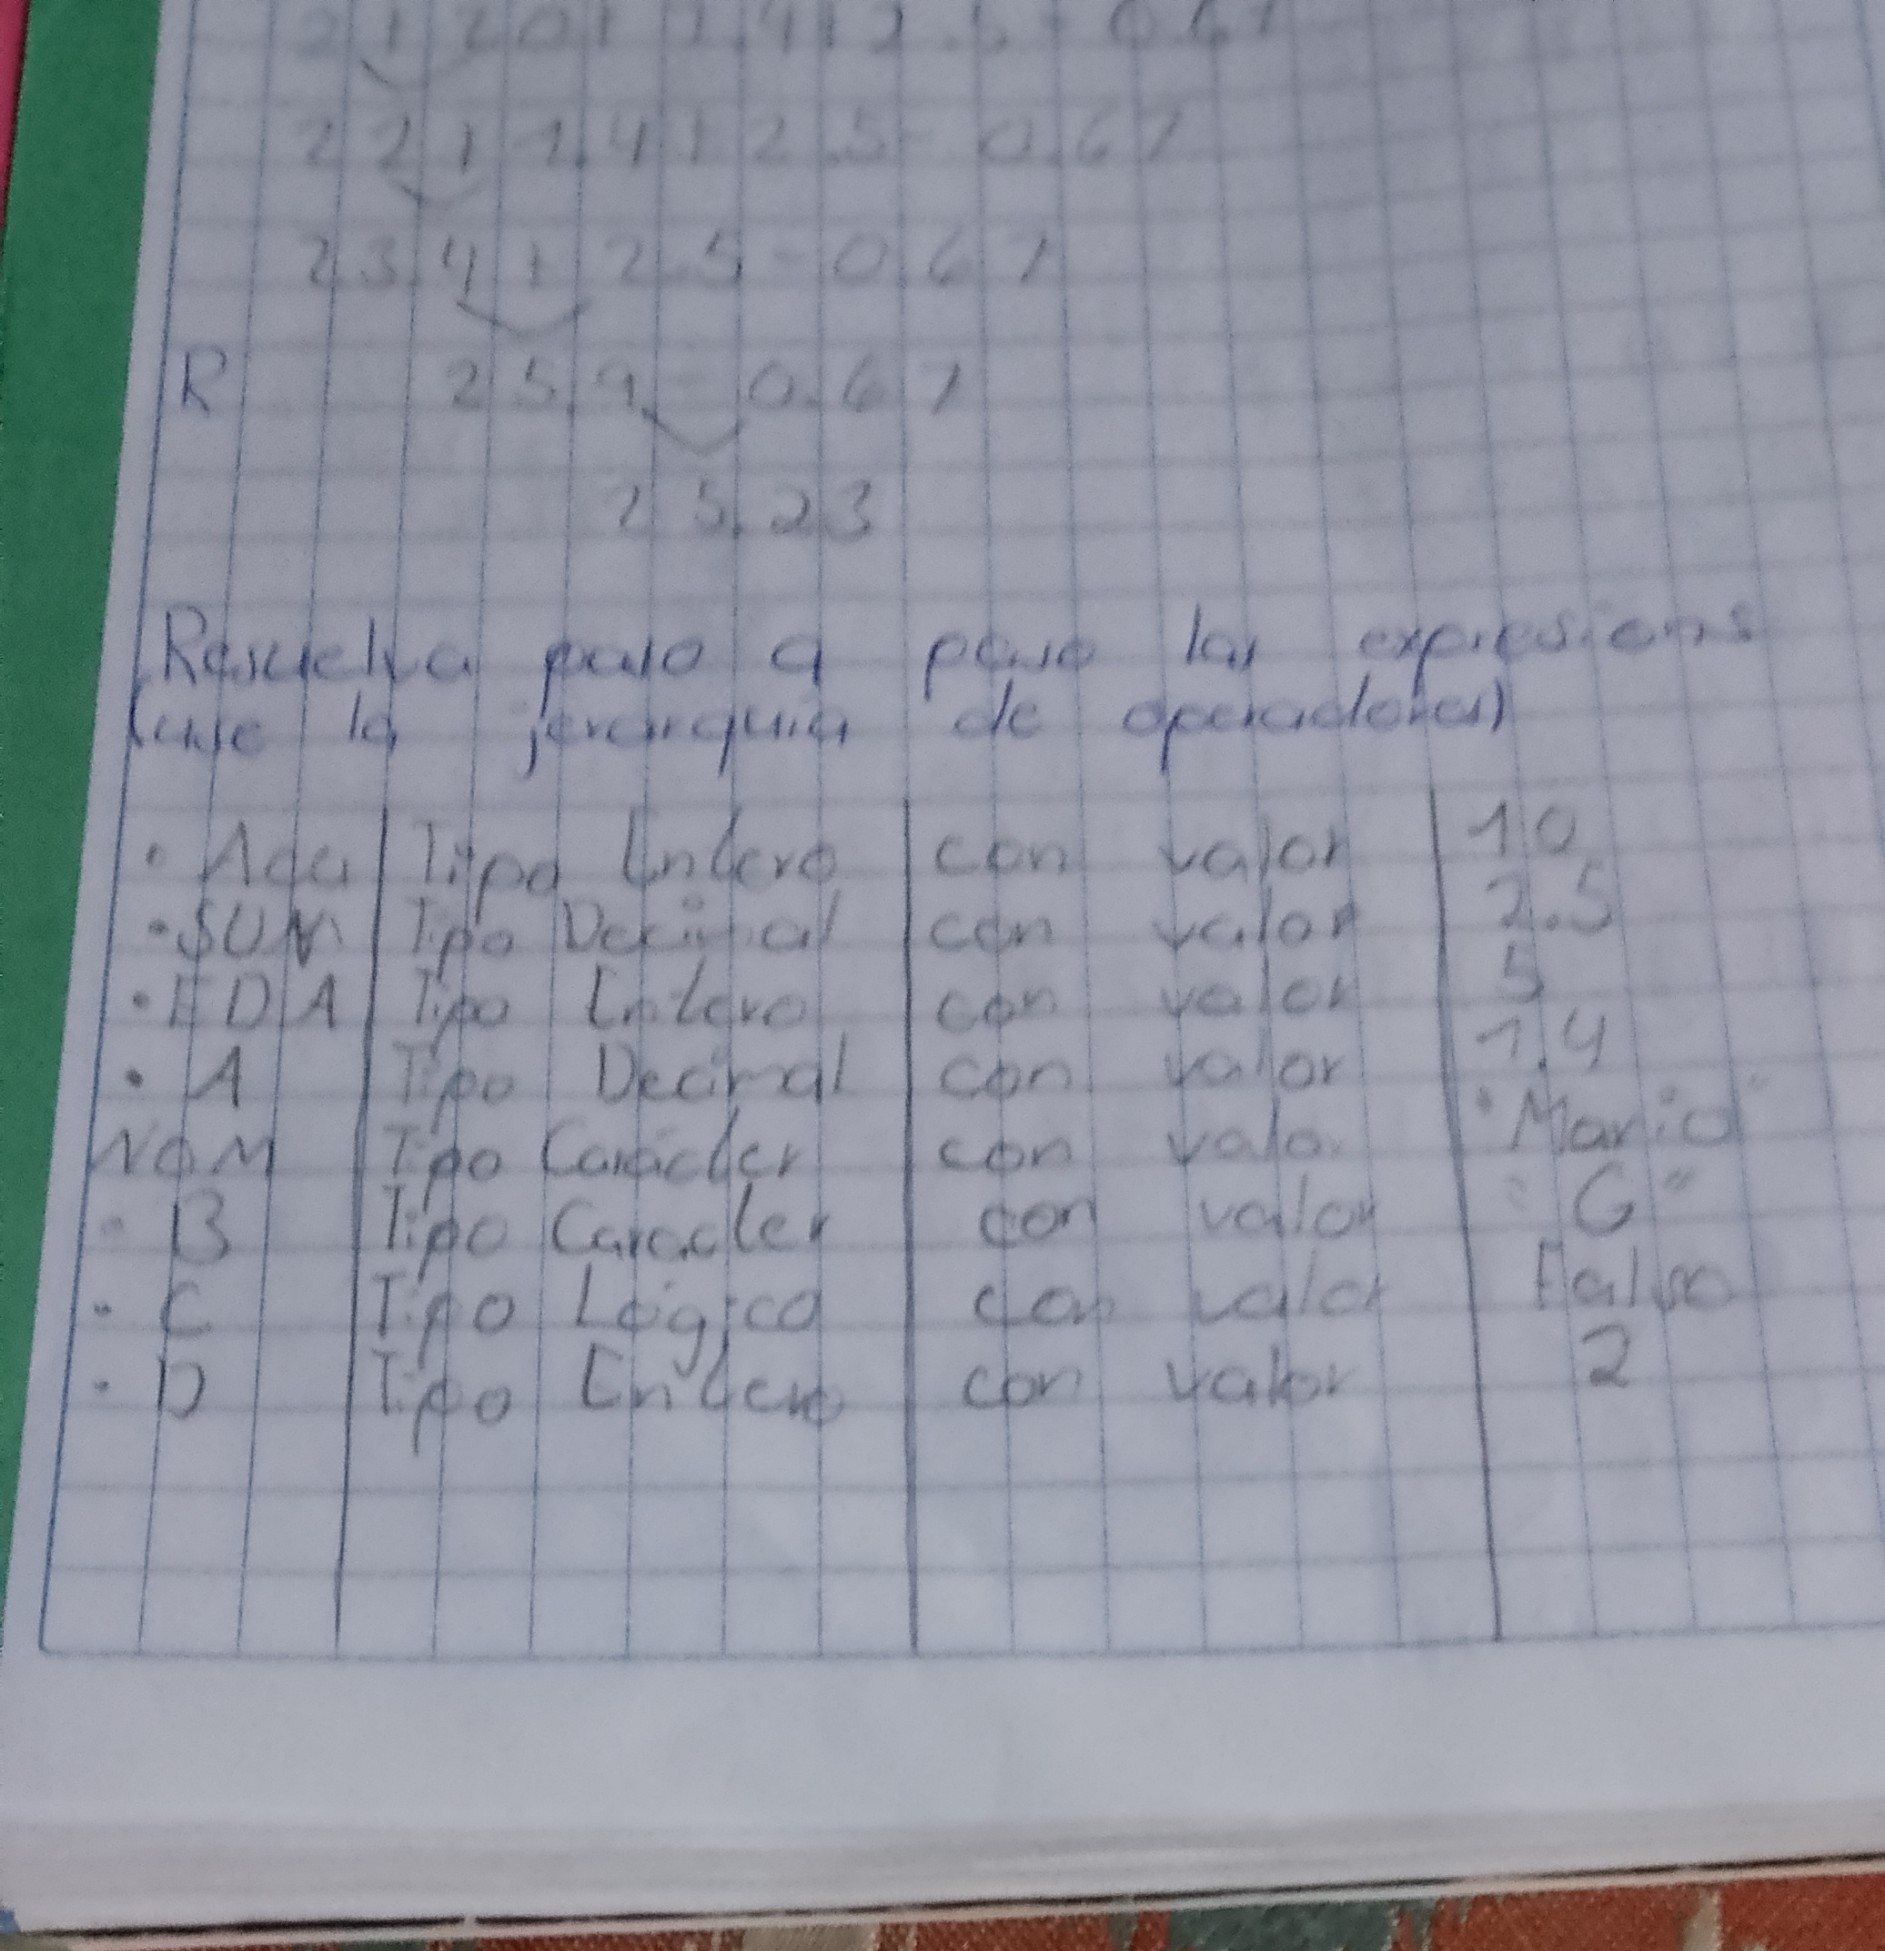 2 + 20 + 1.4 + 2.5 - 0.67
22 + 1.4 + 2.5 - 0.67
23.4 + 2.5 - 0.67
R 25.9 - 0.67
25.23
Resuelva paso a paso las expresions
(use la jerarquia de operadores)
• Aca Tipo Entero con valor 10
• SUM Tipo Decimal con valor 2.5
• EDA Tipo Entero con valor 5
• A Tipo Decimal con valor 1.4
NOM Tipo Caracter con valor "Mario"
• B Tipo Caracter con valor "G"
• C Tipo Lógico con valor Falso
• D Tipo Entero con valor 2